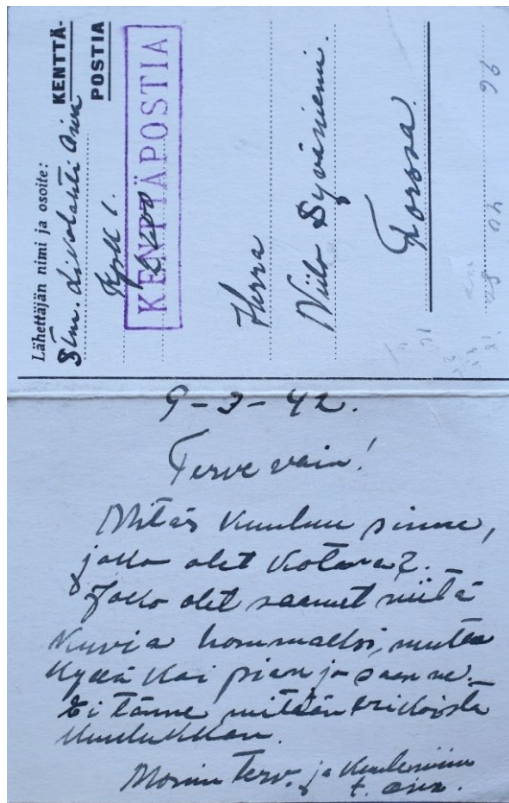 KENTTÄ-
POSTIA
Lähettäjän nimi ja osoite:
KENTTÄPOSTIA
Herra
Niilo Syväniemi.
Forssa.
9-3-42.
Terve vain!
Mitäs kuuluu sinne,
jokko olet kotona?
Jokko olet saanut niitä
kuvia hommattsi, mutta
kyllä kai pian jo saan ne.
Ei tänne mitään erikoista
kuulukkaan.
Monin terv. ja kuulemiin
t.